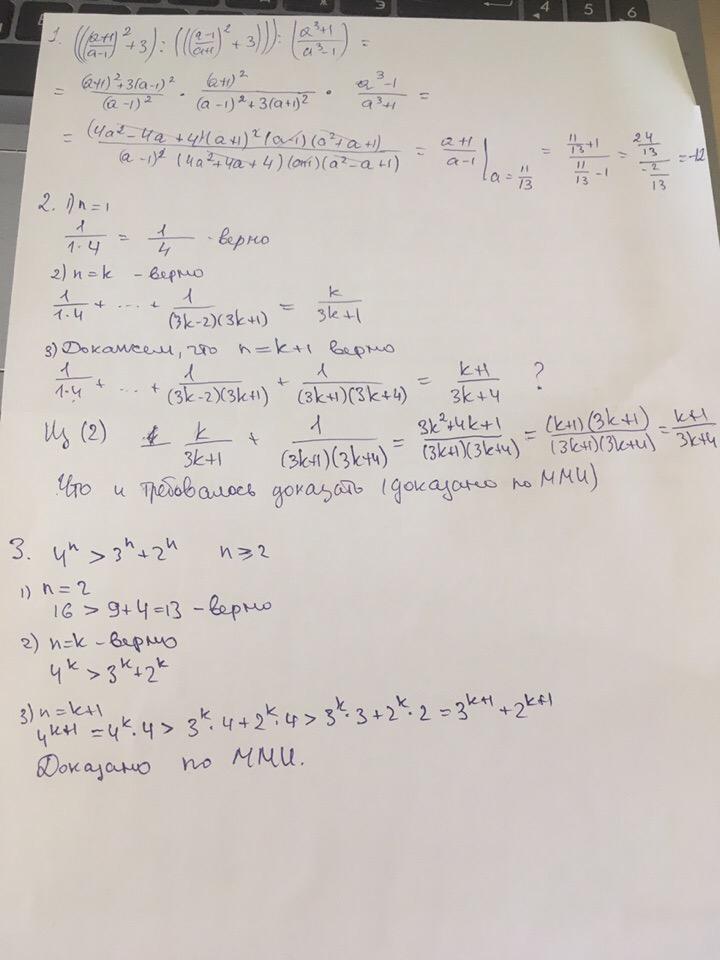 1. (((a+1)/(a-1))² + 3) : (((a-1)/(a+1))² + 3))) : ((a³+1)/(a³-1)) =
= ((a+1)²+3(a-1)²)/(a-1)² · (a+1)²/((a-1)²+3(a+1)²) · (a³-1)/(a³+1) =
= ((4a²-4a+4)(a+1)²(a-1)(a²+a+1))/((a-1)²(4a²+4a+4)(a+1)(a²-a+1)) = (a+1)/(a-1) |a=11/13 = (11/13+1)/(11/13-1) = (24/13)/(-2/13) = -12
2. 1) n=1
1/(1·4) = 1/4 - верно
2) n=k - верно
1/(1·4) + ... + 1/((3k-2)(3k+1)) = k/(3k+1)
3) Докажем, что n=k+1 верно
1/(1·4) + ... + 1/((3k-2)(3k+1)) + 1/((3k+1)(3k+4)) = (k+1)/(3k+4) ?
Из (2) k/(3k+1) + 1/((3k+1)(3k+4)) = (3k²+4k+1)/((3k+1)(3k+4)) = ((k+1)(3k+1))/((3k+1)(3k+4)) = (k+1)/(3k+4)
Что и требовалось доказать (доказано по ММИ)
3. 4ⁿ > 3ⁿ + 2ⁿ n ⩾ 2
1) n=2
16 > 9+4=13 - верно
2) n=k - верно
4ᵏ > 3ᵏ + 2ᵏ
3) n=k+1
4ᵏ⁺¹ = 4ᵏ·4 > 3ᵏ·4 + 2ᵏ·4 > 3ᵏ·3 + 2ᵏ·2 = 3ᵏ⁺¹ + 2ᵏ⁺¹
Доказано по ММИ.